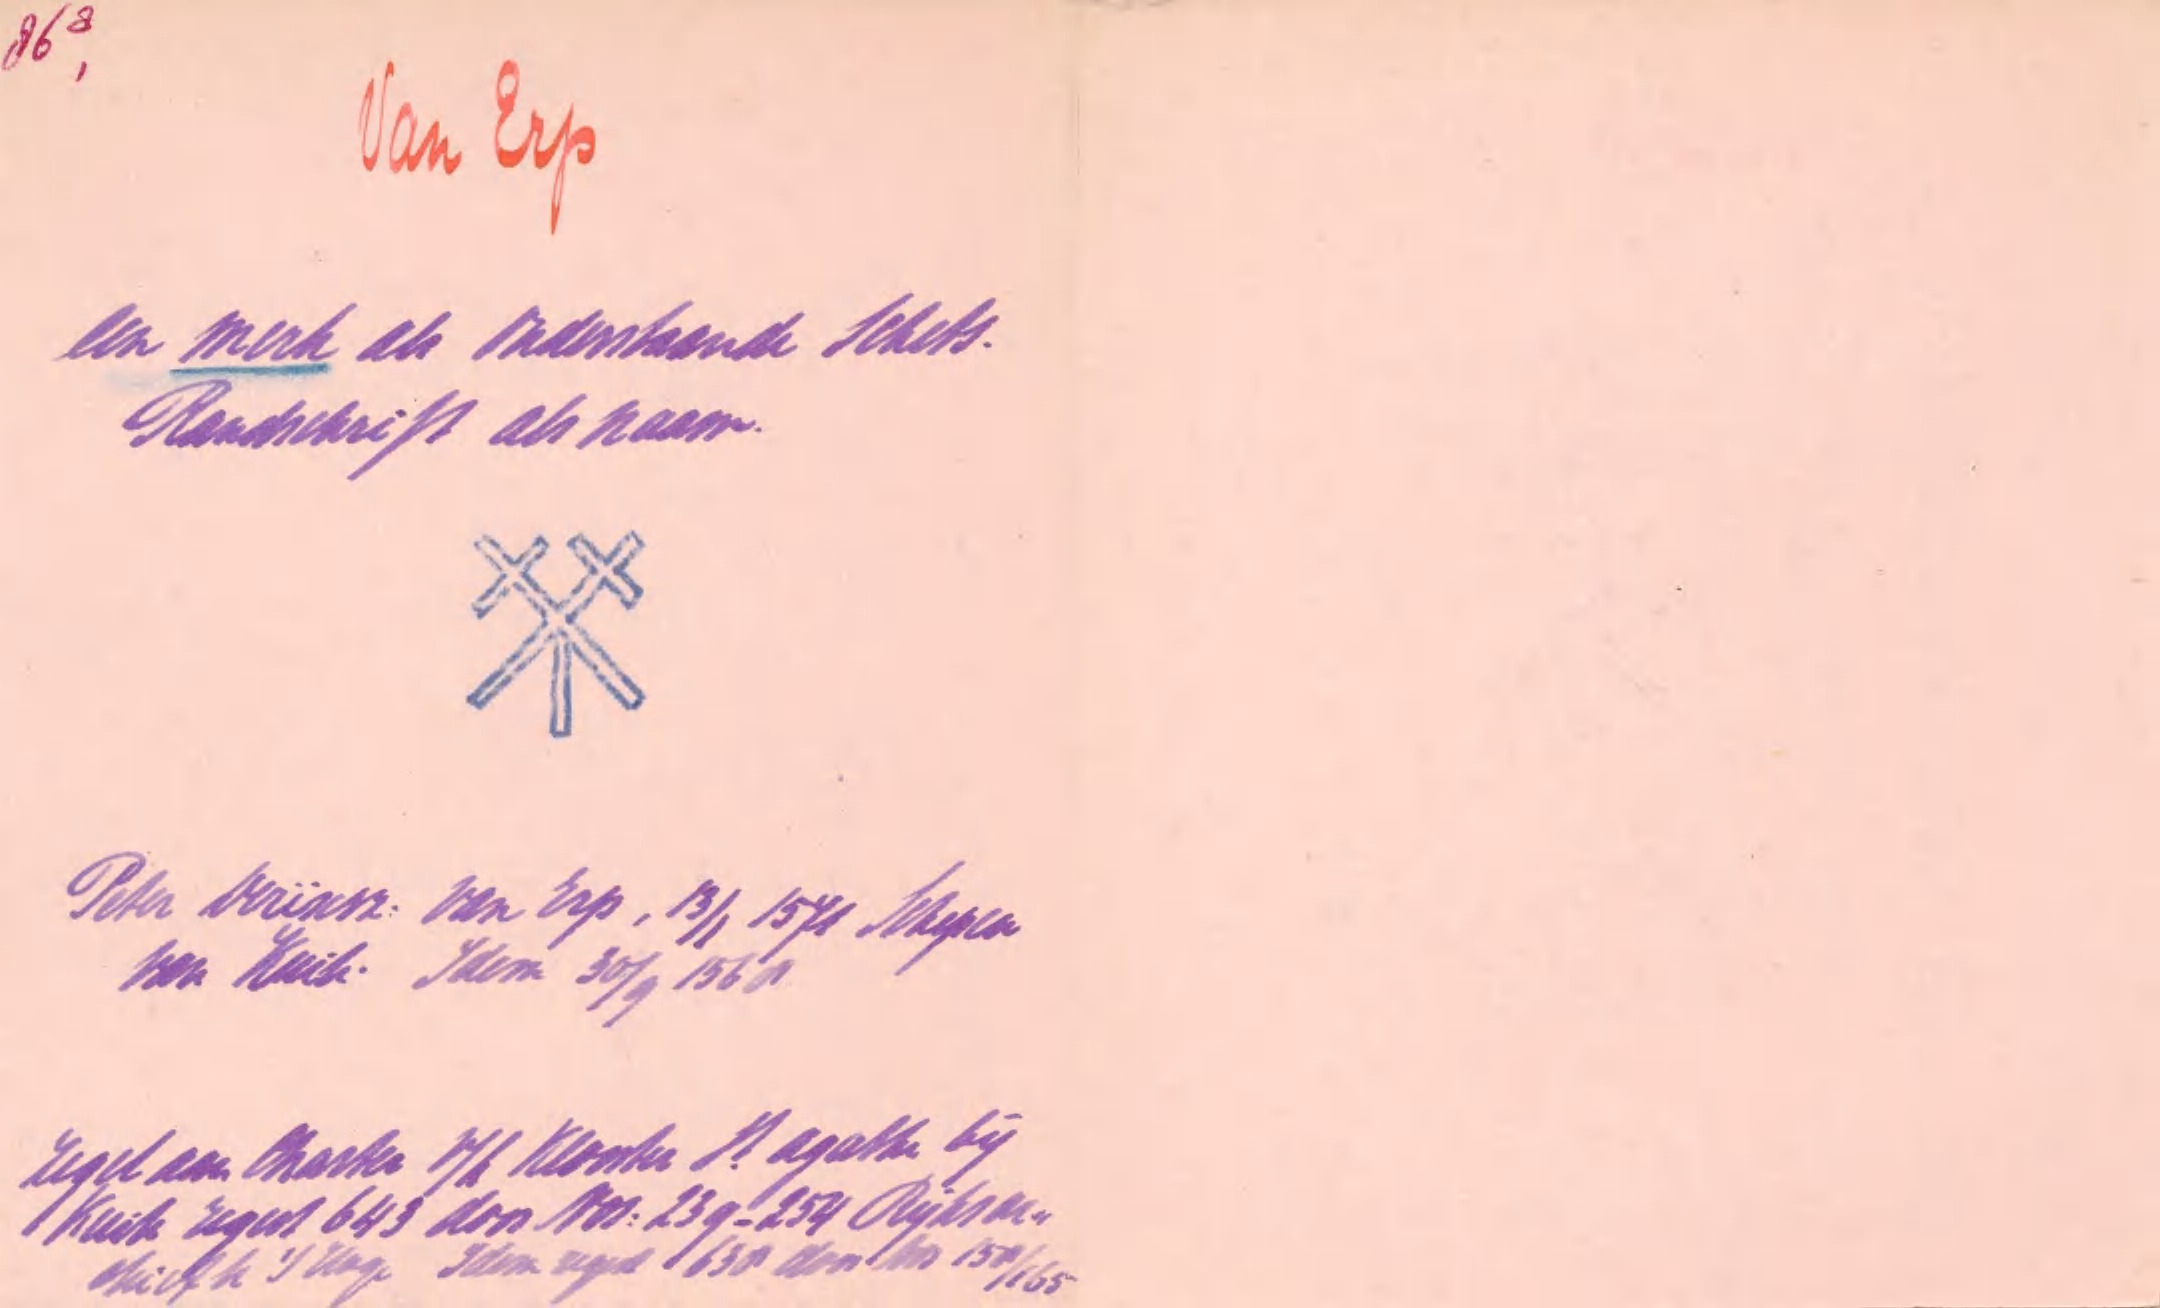 86a,
Van Erp
Een merk als onderstaande schets.
Randschrift als naam.
Peter van Erp, 13/1 1571 Schepen
van Kuik. Idem 30/9 156
Zegel aan Charter v/h Klooster St. Agatha bij
Kuik regest 643 doos Nos: 239-254 Rijksar-
chief te 's Hage Idem regest 630 doos Nos 150/165